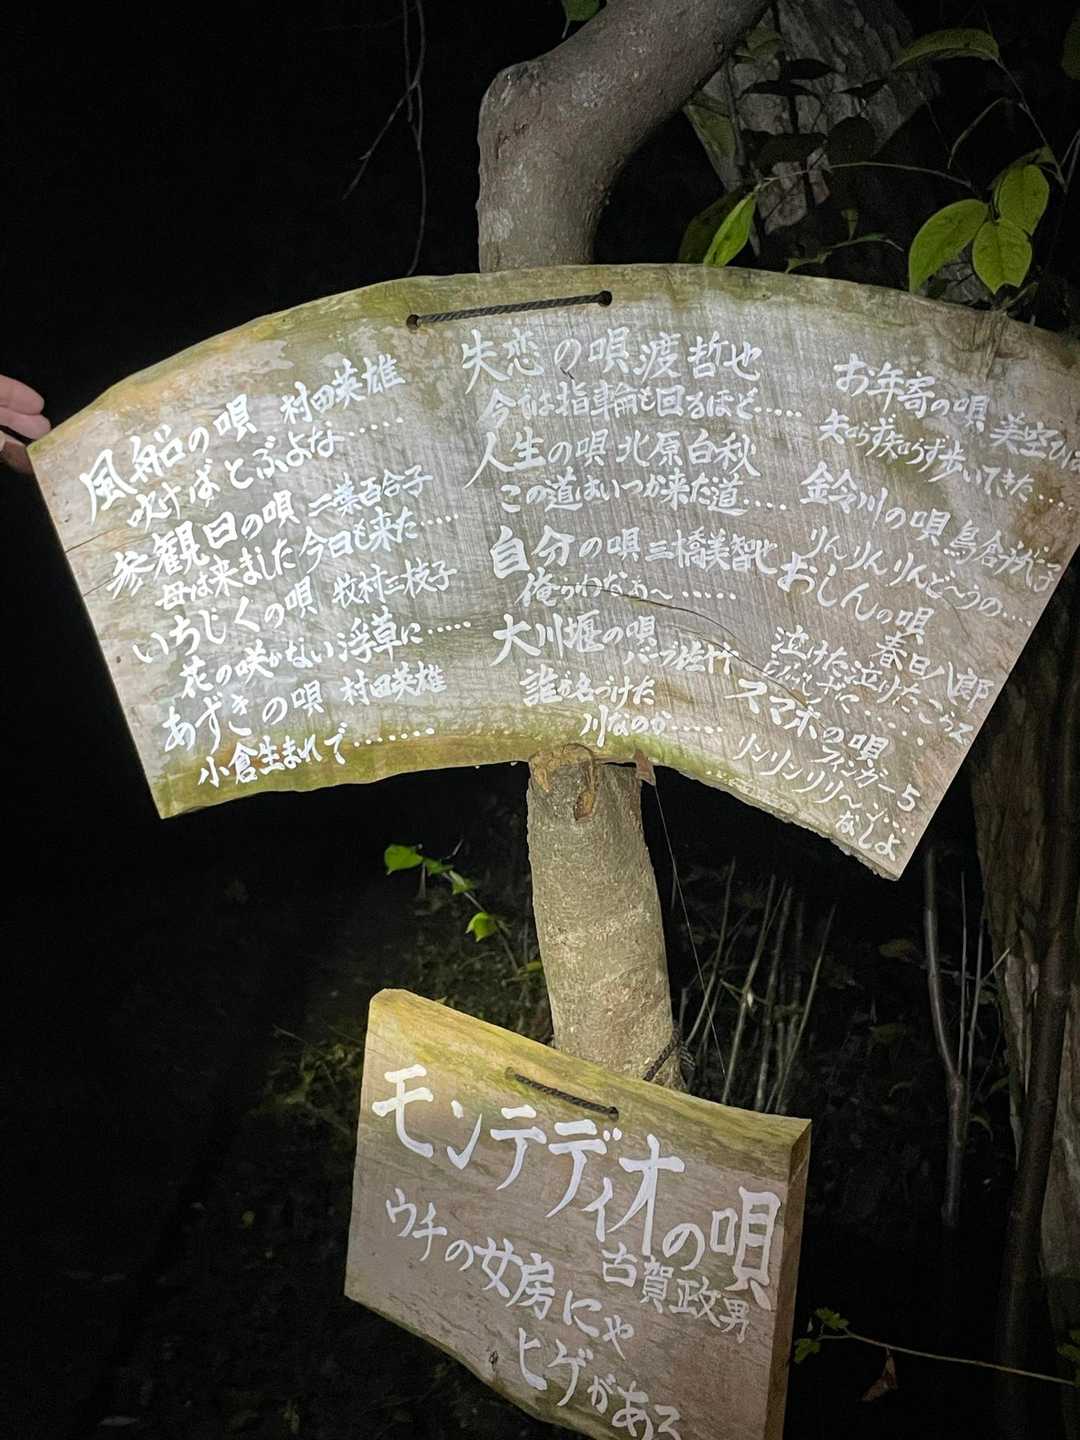 風船の唄 村田英雄
吹けばとぶよな……
参観日の唄 二葉百合子
母は来ました今日も来た……
いちじくの唄 牧村三枝子
花の咲かない浮草に……
あずきの唄 村田英雄
小倉生まれで……
失恋の唄 渡哲也
今では指輪も回るほど……
人生の唄 北原白秋
この道はいつか来た道……
自分の唄 三橋美智也
俺かわなぁ〜……
大川堰の唄
バーブ佐竹
誰が名づけた
川なのか……
お年寄の唄 美空ひば
知らず知らず歩いてきた……
金鈴川の唄 島倉千代子
りんりんりんど〜うの……
おしんの唄
春日八郎
泣けた泣けた〜
スマホの唄
フィンガー5
リンリンリリ〜ン……
なしよ
モンテディオの唄
古賀政男
ウチの女房にゃ
ヒゲがある